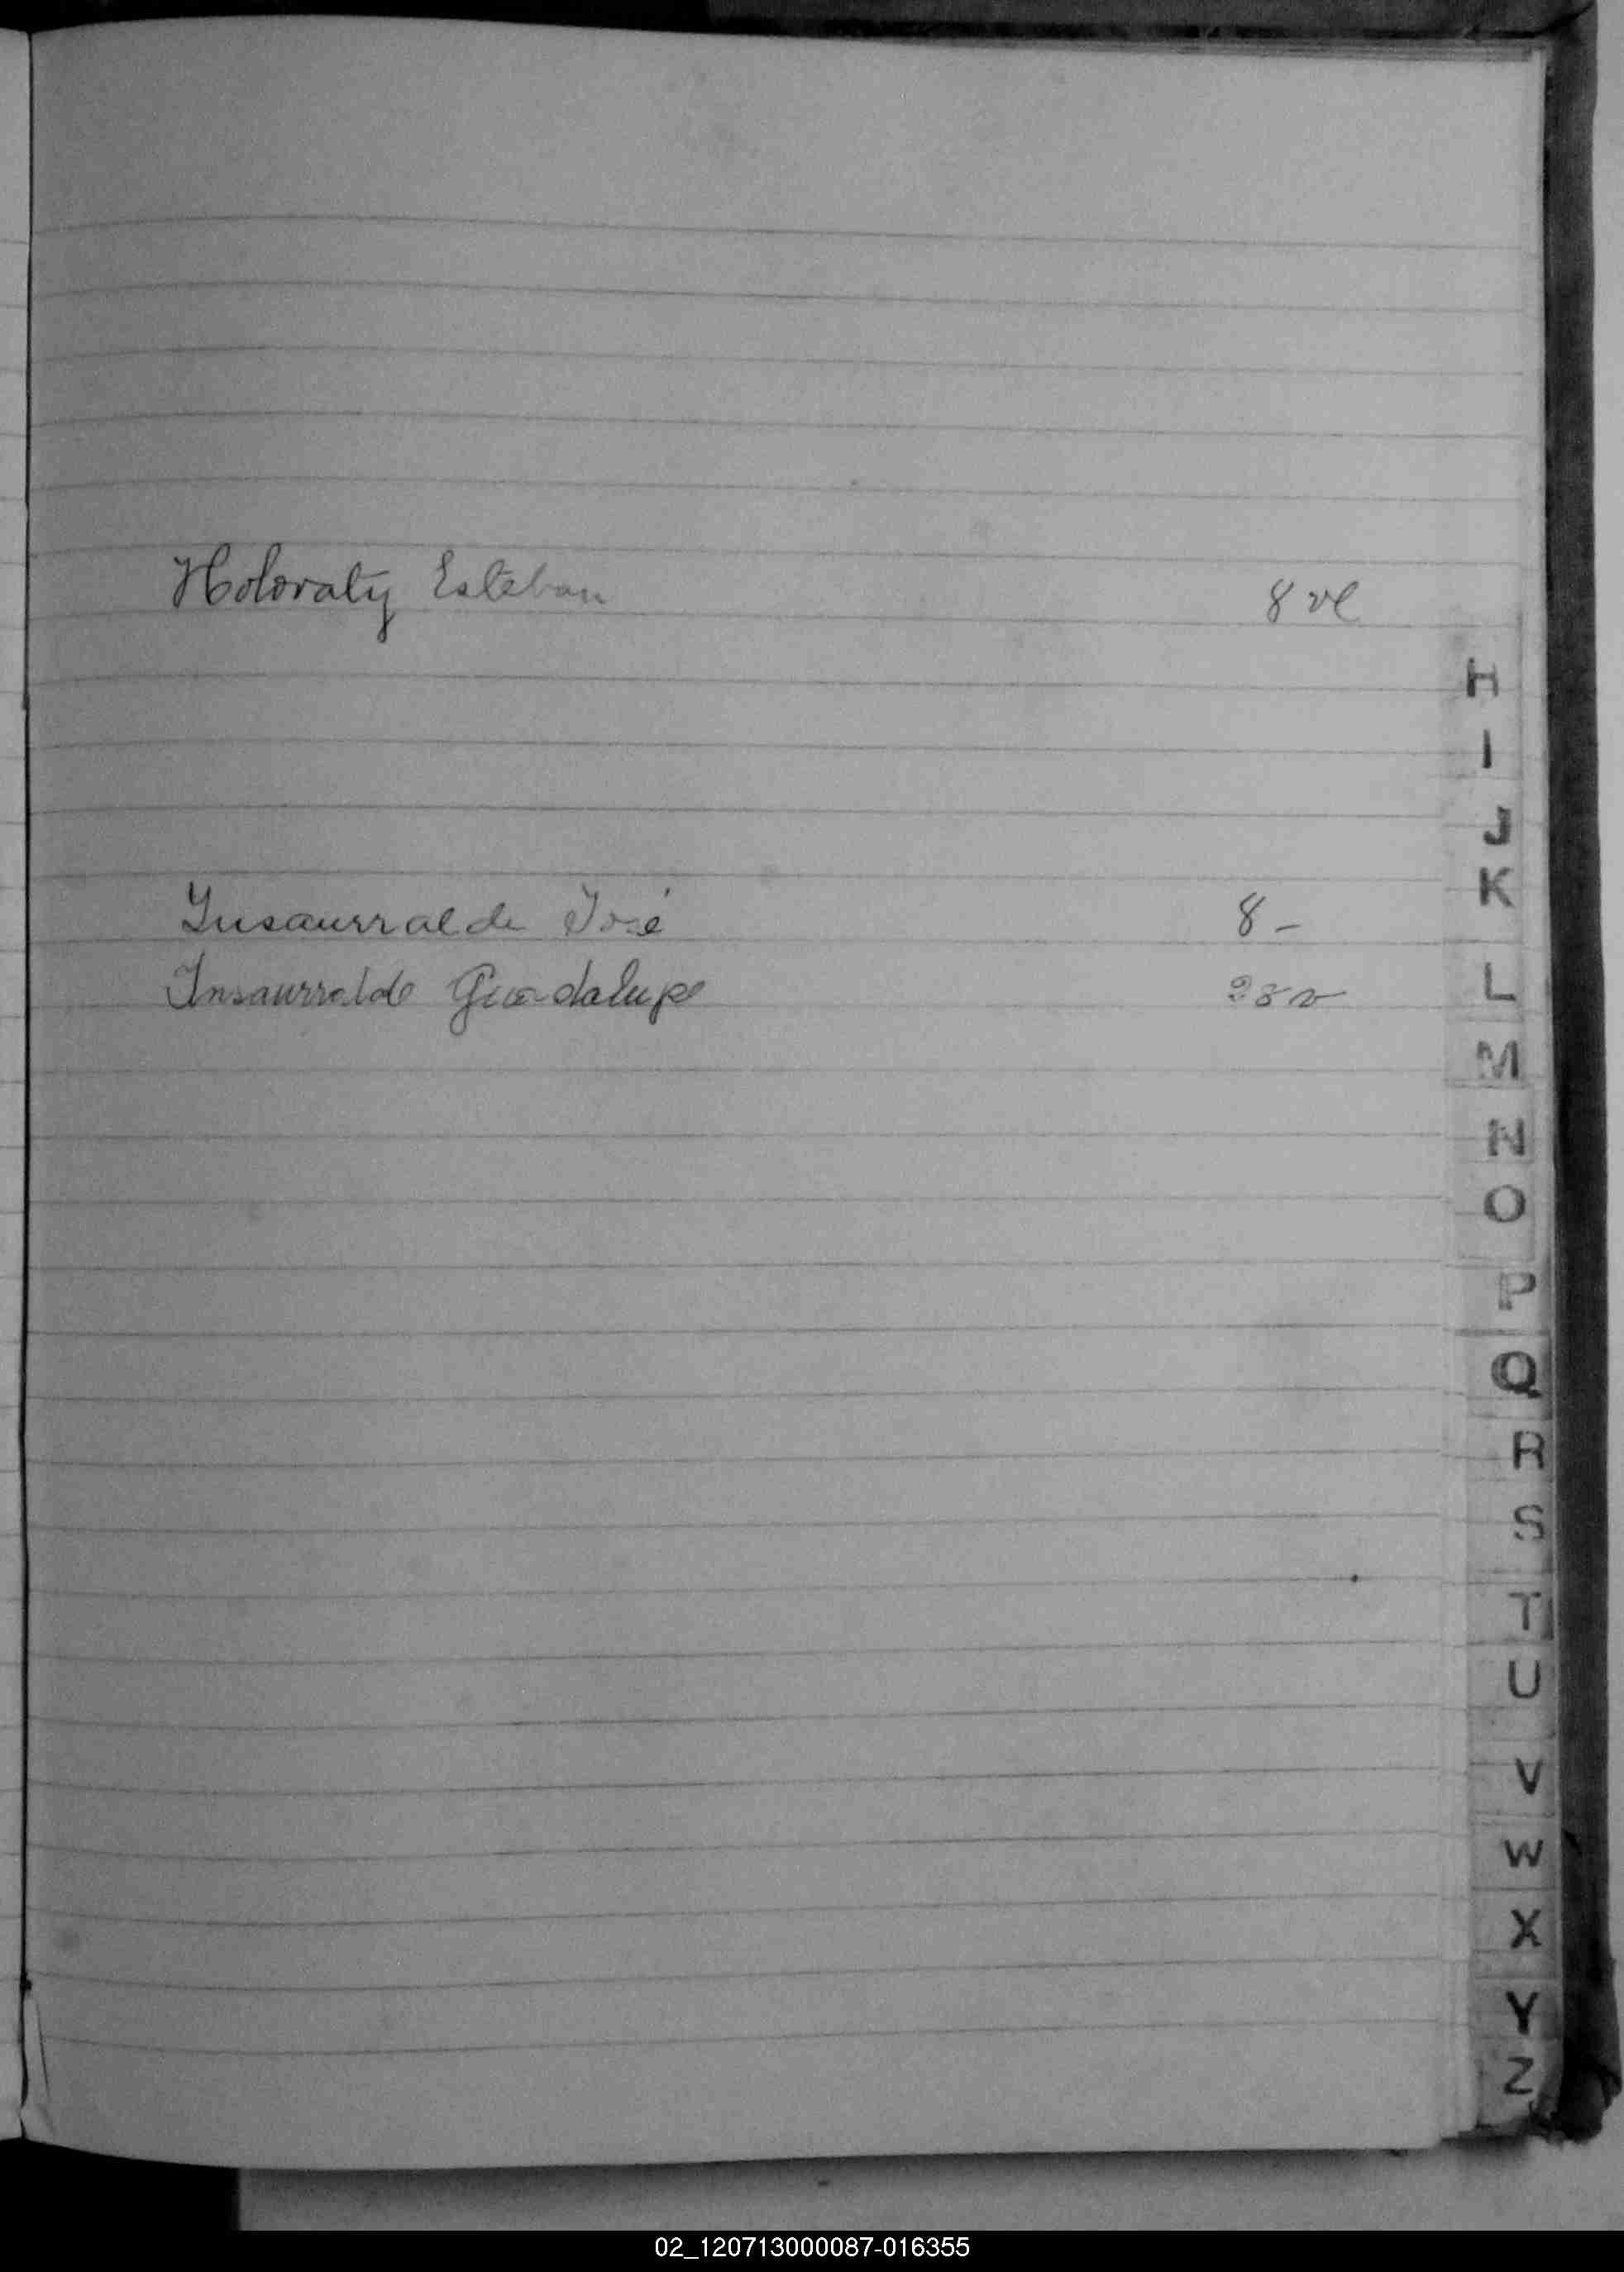 Holovaty Esteban 8 vl
H
I
J
K
Insaurralde José 8 -
Insaurralde Guadalupe 28 v
L
M
N
O
P
Q
R
S
T
U
V
W
X
Y
Z
02_120713000087-016355